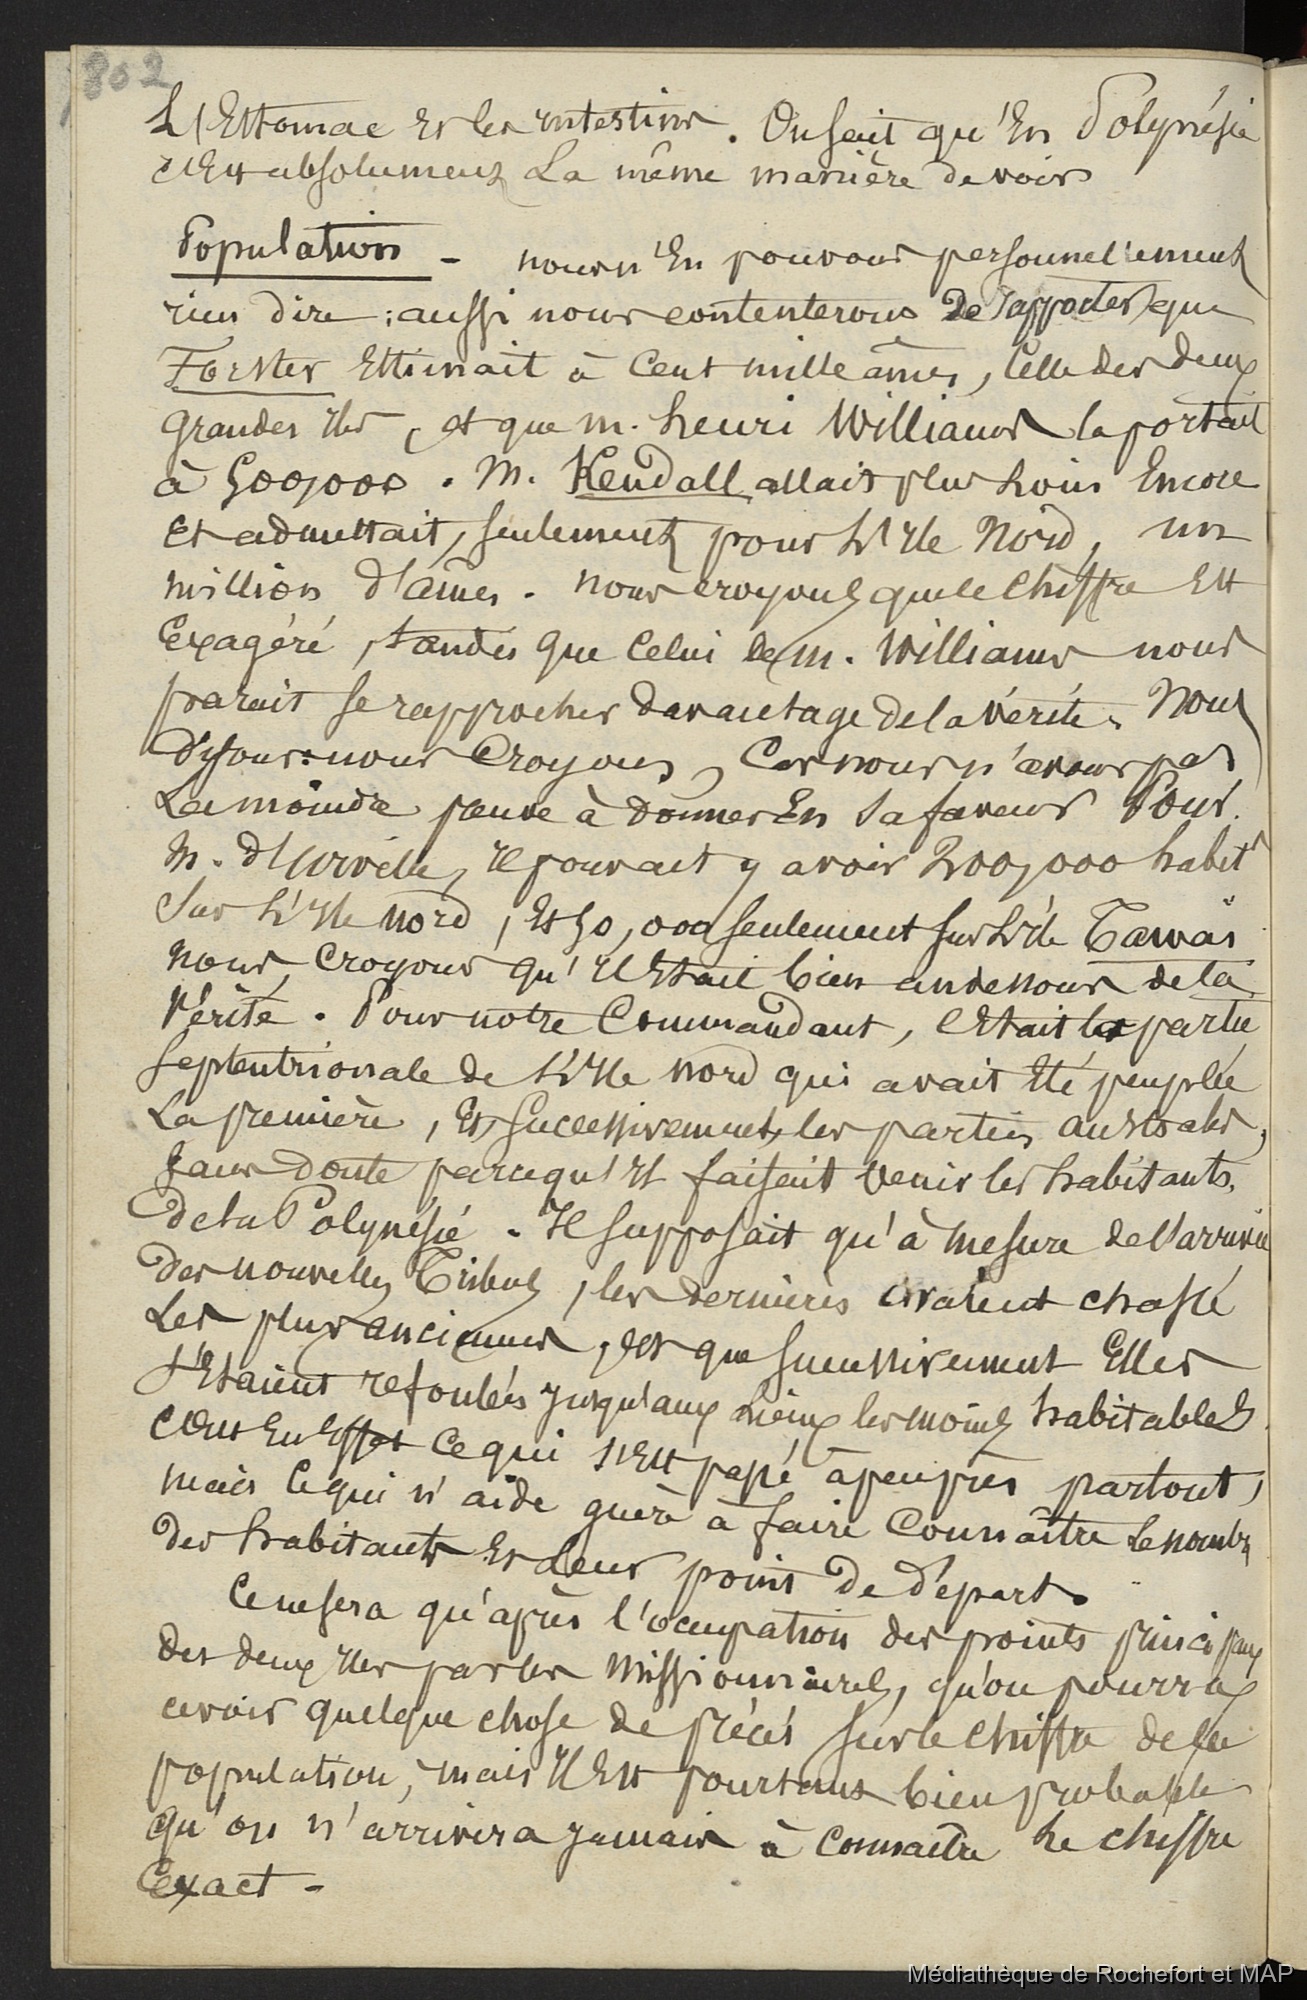 802
L'Estomac et les intestins. On sait qu'En Polynésie
c'Est absolument La même manière de voir
Population - nous n'En pouvons personnellement
rien dire ; aussi nous contenterons De rapporter que
Forster Estimait à Cent mille âmes, Celle des deux
grandes Iles, et que m. henri Williams la portait
à 500,000. M. Kendall allait plus Loin Encore
Et admettait, seulement pour L'Ile Nord, un
million d'âmes. Nous croyons que le Chiffre Est
Exagéré, tandis que Celui de m. Williams nous
parait se rapprocher davantage de la vérité. Nous
disons : nous Croyons, Car nous n'avons pas
La moindre preuve à donner En sa faveur Pour
M. d'Urville, Il pouvait y avoir 200,000 habitts
Sur L'Ile Nord, Et 50,000 seulement sur L'ile Tawaï
Nous Croyons qu'Il Etait bien audessous de la
Vérité. Pour notre Commandant, C'Etait la partie
septentrionale de L'Ile Nord qui avait Eté peuplée
La première, Et, successivement, les parties australes,
sans doute parcequ'Il faisait venir les habitants
de la Polynésie. Il supposait qu'à mesure de l'arrivée
des nouvelles Tribus, les dernières avaient chassé
Les plus anciennes, Et que successivement Elles
s'Etaient refoulées jusqu'aux Lieux les moins habitables
C'Est En Effet Ce qui s'Est passé àpeuprès partout,
mais Ce qui n'aide guère à faire Connaître Le nombre
des habitants Et Leur point De départ.
Ce ne sera qu'après l'occupation des points principaux
des deux Iles par les Missionnaires, qu'on pourra
avoir quelque chose de précis sur le Chiffre de la
population, mais Il Est pourtant bien probable
qu'on n'arrivera jamais à Connaître Le chiffre
Exact -
Médiathèque de Rochefort et MAP